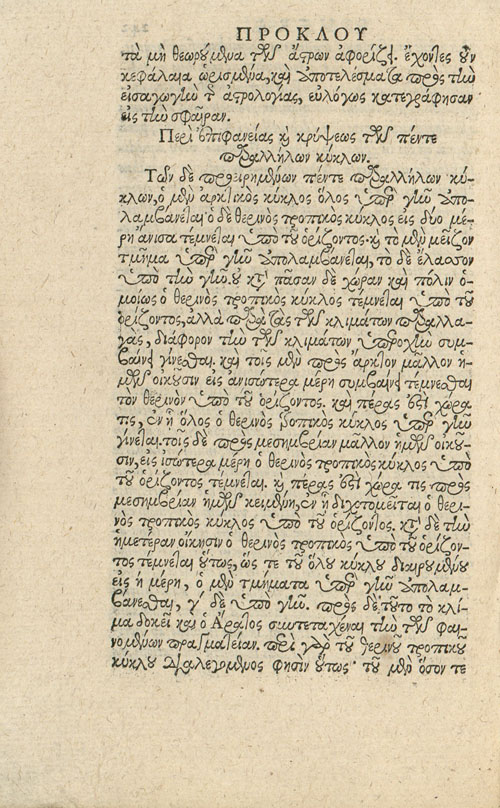 ΠΡΟΚΛΟΥ
τὰ μὴ θεωρούμενα τῶν ἄστρων ἀφορίζει. ἔχοντες οὖν
κεφάλαια ὡρισμένα, καὶ ἀποτελέσματα πρὸς τὴν
εἰσαγωγὴν τ ἀστρολογίας, εὐλόγως κατεγράφησαν
εἰς τὴν σφαῖραν.
Περὶ ἐπιφανείας κỳ κρύψεως τῶν πέντε
παραλλήλων κύκλων.
Τῶν δὲ προειρημένων πέντε παραλλήλων κύ-
κλων, ὁ μὲν ἀρκτικὸς κύκλος ὅλος ὑπὲρ γῆν ἀπο-
λαμβάνεται ὁ δὲ θερινὸς τροπικὸς κύκλος εἰς δύο μέ-
ρη ἄνισα τέμνεται ὑπὸ τοῦ ὁρίζοντος. κỳ τὸ μὲν μεῖζον
τμῆμα ὑπὲρ γῆν ἀπολαμβάνεται, το δὲ ἔλασσον
ὑπὸ τὴν γῆν. οὐ κατὰ πᾶσαν δὲ χώραν καὶ πόλιν ὁ-
μοίως ὁ θερινὸς τροπικὸς κύκλος τέμνεται ὑπὸ τοῦ
ὁρίζοντος, ἀλλὰ παρὰ τὰς τῶν κλιμάτων παραλλα-
γὰς, διάφορον τὴν τῶν κλιμάτων ὑπεροχὴν συμ-
βαίνει γίνεσθαι. καὶ τοῖς μὲν πρὸς ἄρκτον μᾶλλον ἡ-
μῶν οἰκοῦσιν εἰς ἀνισώτερα μέρη συμβαίνει τέμνεσθαι
τὸν θερινὸν ὑπὸ τοῦ ὁρίζοντος. καὶ πέρας ἐστὶ χώρα
τις, ἐν ᾗ ὅλος ὁ θερινὸς τροπικὸς κύκλος ὑπὲρ γῆν
γίνεται. τοῖς δὲ πρὸς μεσημβρίαν μᾶλλον ἡμῶν οἰκοῦ-
σιν, εἰς ἰσώτερα μέρη ὁ θερινὸς τροπικὸς κύκλος ὑπὸ
τοῦ ὁρίζοντος τέμνεται. κỳ πέρας ἐστὶ χώρα τις πρὸς
μεσημβρίαν ἡμῶν κειμένη, ἐν ᾗ διχοτομεῖται ὁ θερι-
νὸς τροπικὸς κύκλος ὑπὸ τοῦ ὁρίζοντος. κατὰ δὲ τὴν
ἡμετέραν οἴκησιν ὁ θερινὸς τροπικὸς ὑπὸ τοῦ ὁρίζον-
τος τέμνεται οὕτως, ὥς τε τοῦ ὅλου κύκλου διαιρουμένου
εἰς ή μέρη, ὁ μὲν τμήματα ὑπὲρ γῆν ἀπολαμ-
βάνεσθαι, γ´ δὲ ὑπὸ γῆν. πρὸς δὲ, τοῦτο τὸ κλί-
μα δοκεῖ καὶ ὁ Ἄρατος συντεταχέναι τὴν τῶν φαι-
νομένων πραγματείαν. περὶ γὰρ τοῦ θερινοῦ τροπικοῦ
κύκλου διαλεγόμενος φησὶν οὕτως· τοῦ μὲν ὅσον τε